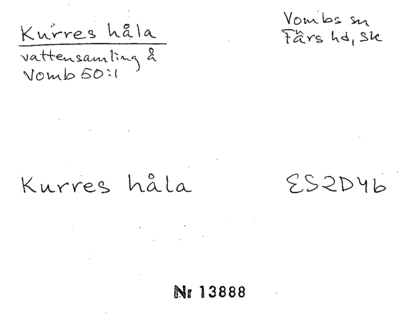 Kurres håla
vattensamling å
Vomb 50:1
Vombs sn
Färs hd, Sk
Kurres håla
ES2D4b
Nr 13888